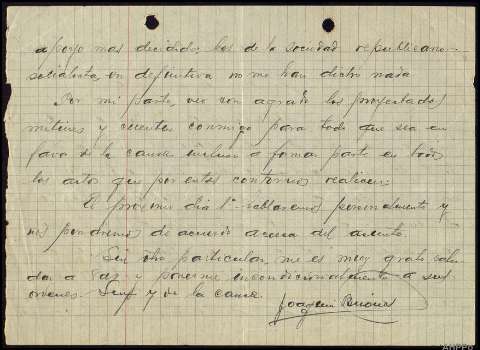 apoyo mas decidido; los de la sociedad republicano-
socialista, en definitiva no me han dicho nada
Por mi parte, veo con agrado los proyectados
mitines y cuenten conmigo para todo que sea en
favor de la causa incluso a formar parte en todos
los actos que por estos contornos realicen.
El proximo dia 1º hablaremos personalmente y
nos pondremos de acuerdo acerca del asunto.
Sin otro particular, me es muy grato salu-
dar a Vds. y ponerme incondicionalmente a sus
ordenes. Suyo y de la causa.
Joaquin